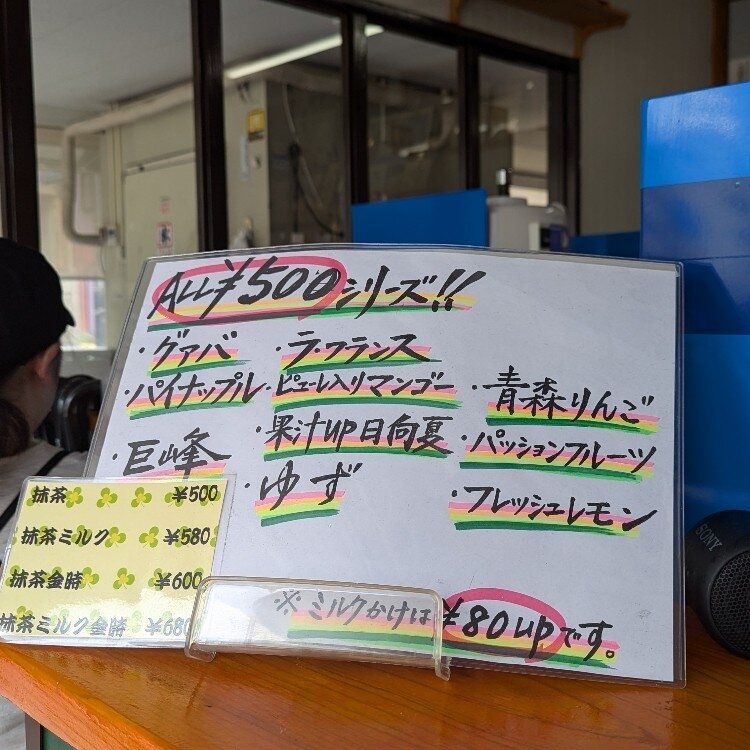 ALL ¥500シリーズ!!
・グァバ
・ラ・フランス
・パイナップル
・ピューレ入りマンゴー
・青森りんご
・巨峰
・果汁UP日向夏
・パッションフルーツ
・ゆず
・フレッシュレモン
※ミルクかけは¥80upです。
抹茶 ¥500
抹茶ミルク ¥580
抹茶金時 ¥600
抹茶ミルク金時 ¥680
SONY